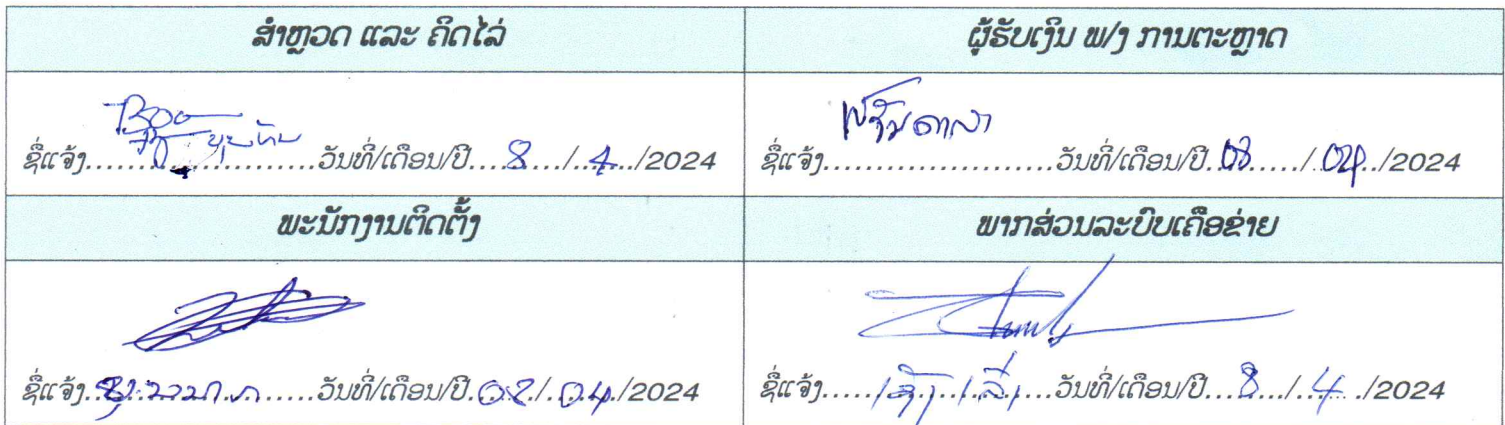 ສຳຫຼວດ ແລະ ຄິດໄລ່
ຜູ້ຮັບເງິນ ພ/ງ ການຕະຫຼາດ
ຊື່ແຈ້ງ.......................ວັນທີ່/ເດືອນ/ປີ....8..../...4.../2024
ຊື່ແຈ້ງ.......................ວັນທີ່/ເດືອນ/ປີ..08....../..04../2024
ພະນັກງານຕິດຕັ້ງ
ພາກສ່ວນລະບົບເຄືອຂ່າຍ
ຊື່ແຈ້ງ.......................ວັນທີ່/ເດືອນ/ປີ..08../..04../2024
ຊື່ແຈ້ງ.......................ວັນທີ່/ເດືອນ/ປີ....8.../...4.../2024